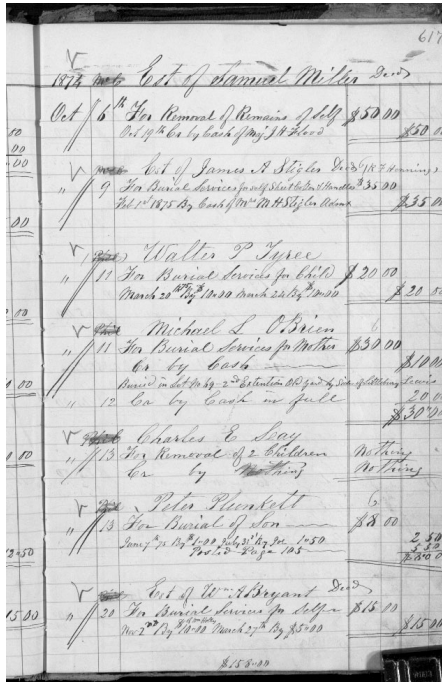 617
1874 Est of Samuel Miller Decd
Oct 6th For Removal of Remains of Self $50 00
Oct 19th Cr by Cash of Maj J H Flood $50 0
00
00
Est of James A Stigler Decd
" 9 For Burial Services for self $35 00
Feb 1st 1875 By Cash of Mrs M H Stigler $35 0
00
Walter P Tyree
" 11 For Burial Services for Child $20 00
March 20 By $10=00 March 24 By $10=00 $20 00
00
Michael L OBrien
" 11 For Burial Services for Mother $30 00
Cr by Cash $10 00
Buried in Lot No 69 - 2nd Extention Old Yard by Side of
" 12 Ca by Cash in full 20 0
00 $30 00
Charles E Seay
" 13 For Removal of 2 Children Nothing
00 Cr by Nothing Nothing
Peter Plunkett
" 13 For Burial of Son $8 00
June 7th 75 By 1=00 July 31st By 1=50 2 50
Posted Page 105 5 50
2=50 $8 00
Est of Wm A Bryant Decd
" 20 For Burial Services for Self $15 00
15 00 Nov 2nd By 10=00 March 27th By $5=00 $15 00
$158=00